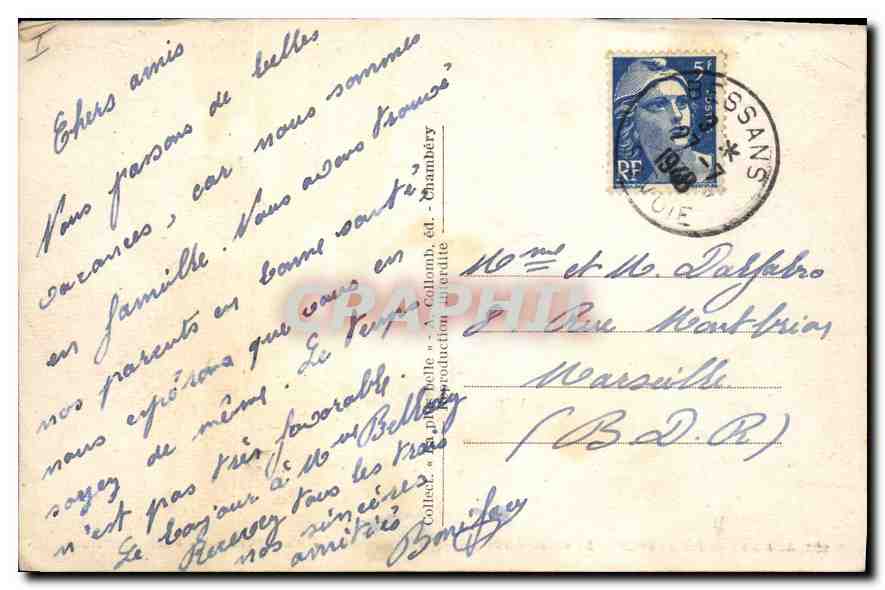 I
Chers amis
Nous passons de belles
vacances, car nous sommes
en famille. Nous avons trouvé
nos parents en bonne santé,
nous espérons que vous en
soyez de même. Le temps
n'est pas très favorable.
Le bonjour à Mme
Recevez tous les trois
nos sincères
amitiés
Boniface
Collect. "La plus belle" - A. Collomb, éd. - Chambéry
Reproduction interdite
5F
POSTES
RF
BESSANS
13 -7
1948
SAVOIE
Mme et M. Dalfabro
8 Rue Montbrion
Marseille
(B D R)
CRAPHIL